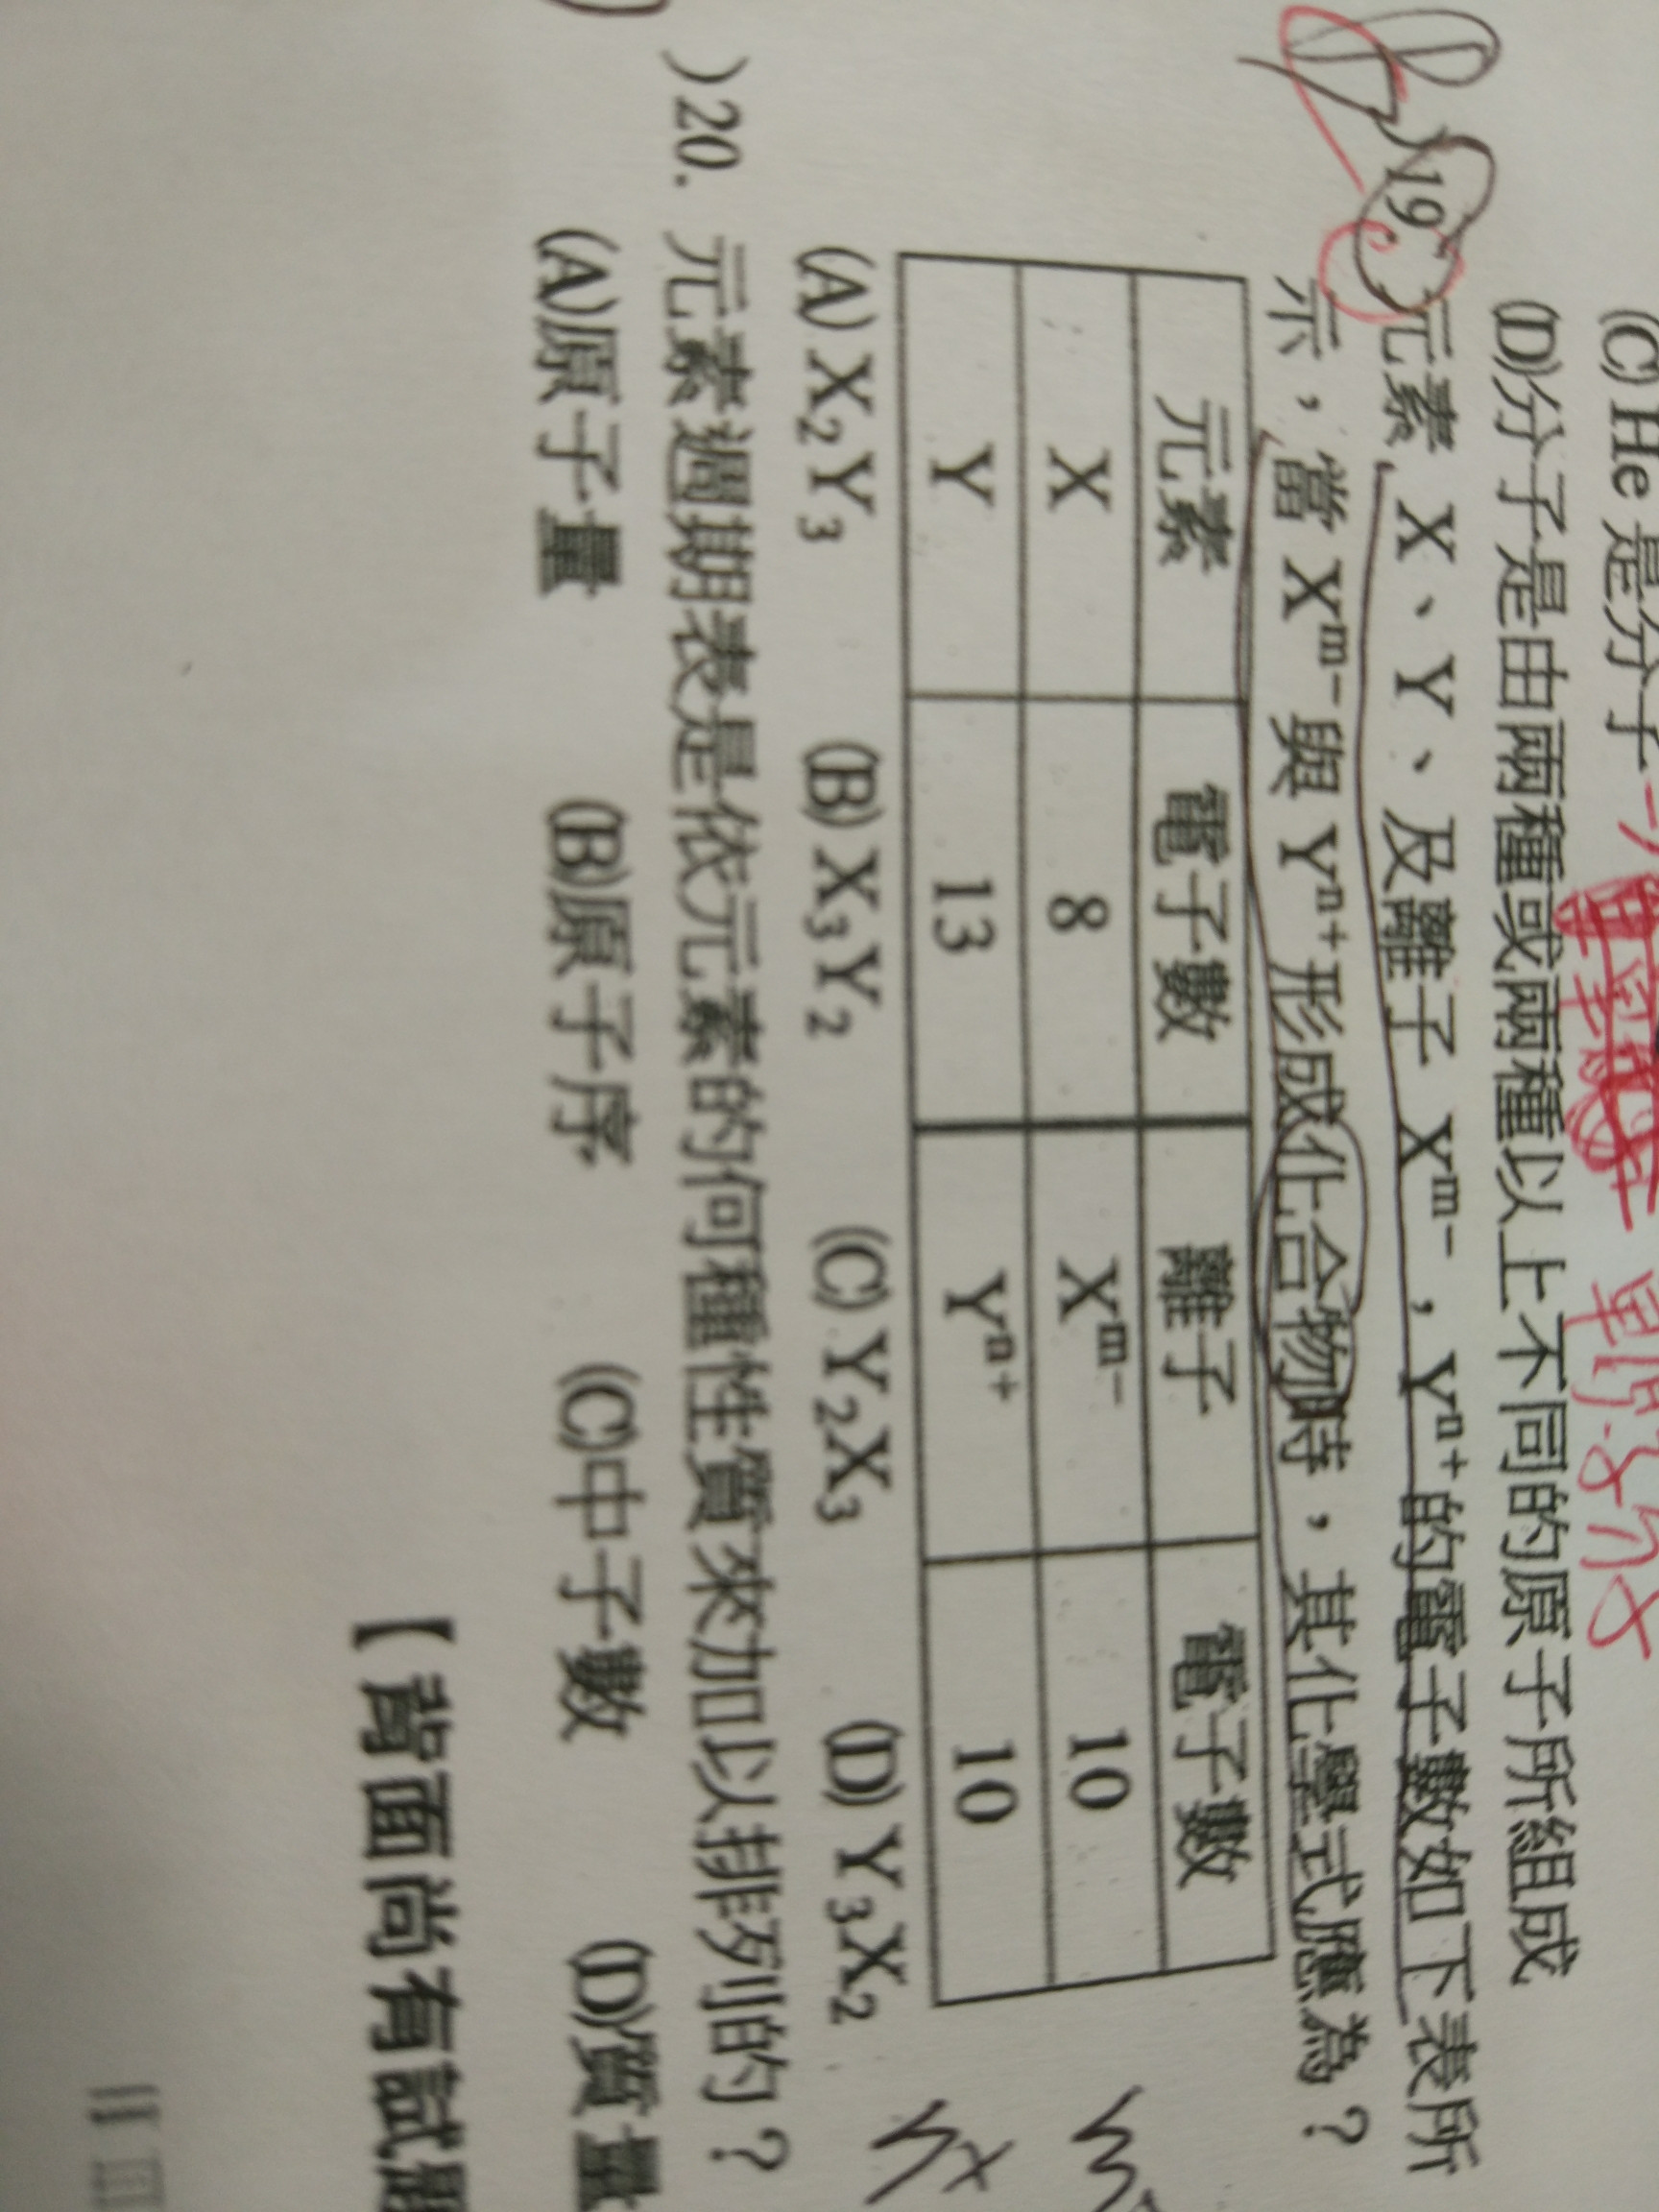 (C) He 是分子
(D)分子是由兩種或兩種以上不同的原子所組成
19. 元素 X、Y、及離子 Xᵐ⁻，Yⁿ⁺ 的電子數如下表所
示，當 Xᵐ⁻ 與 Yⁿ⁺ 形成化合物時，其化學式應為？
元素 電子數 離子 電子數
X 8 Xᵐ⁻ 10
Y 13 Yⁿ⁺ 10
(A) X₂Y₃ (B) X₃Y₂ (C) Y₂X₃ (D) Y₃X₂
)20. 元素週期表是依元素的何種性質來加以排列的？
(A)原子量 (B)原子序 (C)中子數 (D)質量
【背面尚有試題